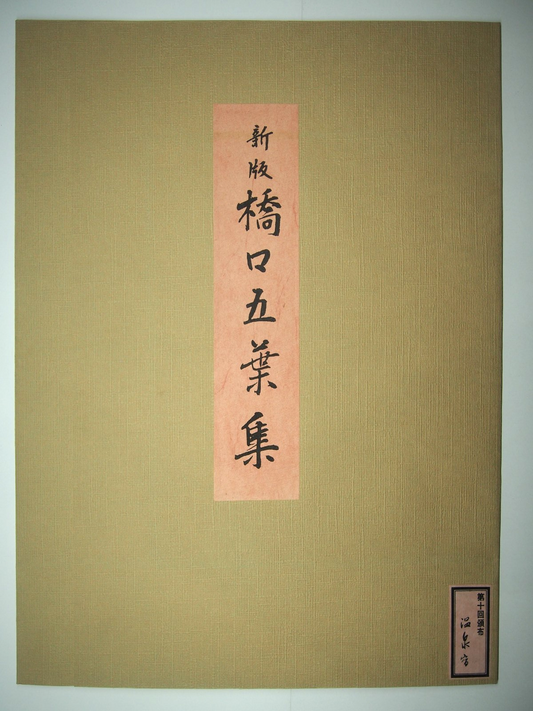 新版橋口五葉集
第十回頒布
温泉宿